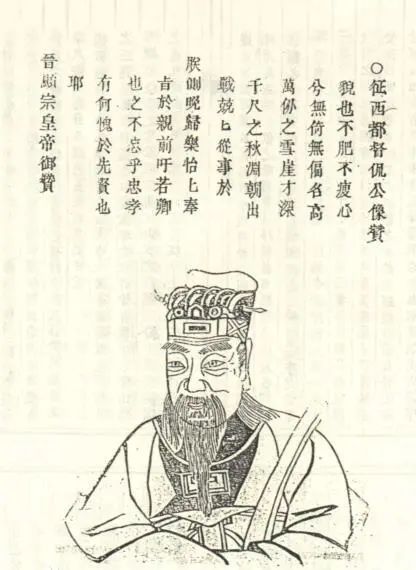 ○征西都督侃公像贊
貌也不肥不瘦心
兮無倚無偏名高
萬仭之雪崖才深
千尺之秋淵朝出
戰兢匕從事於
朕側晚歸樂怡匕奉
旨於親前吁若卿
也之不忘乎忠孝
有何愧於先賢也
耶
晉顯宗皇帝御贊